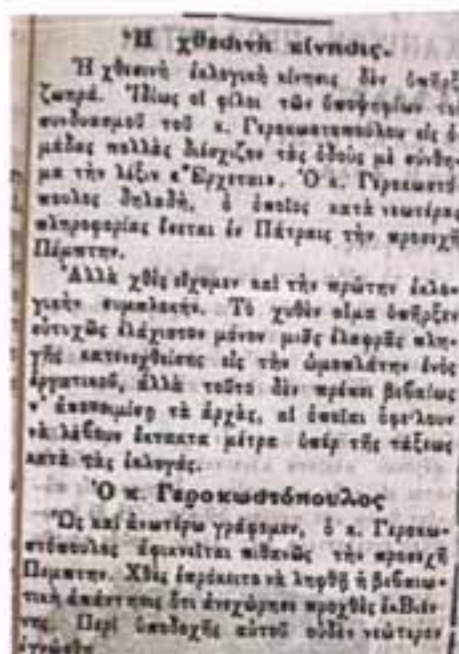 Ἡ χθεσινὴ κίνησις.
Ἡ χθεσινὴ ἐκλογικὴ κίνησις δὲν ὑπῆρξε
ζωηρά. Ἰδίως οἱ φίλοι τῶν ὑποψηφίων τοῦ
συνδυασμοῦ τοῦ κ. Γεροκωστοπούλου εἰς ὁ-
μάδας πολλὰς διέσχιζον τὰς ὁδοὺς μὲ σύνθη-
μα τὴν λέξιν «Ἔρχεται». Ὁ κ. Γεροκωστό-
πουλος δηλαδή, ὁ ὁποῖος κατὰ νεωτέρας
πληροφορίας ἔσεται ἐν Πάτραις τὴν προσεχῆ
Πέμπτην.
Ἀλλὰ χθὲς εἴχομεν καὶ τὴν πρώτην ἐκλο-
γικὴν συμπλοκήν. Τὸ χυθὲν αἷμα ὑπῆρξεν
εὐτυχῶς ἐλάχιστον μόνον μιᾶς ἐλαφρᾶς πλη-
γῆς κατενεχθείσης εἰς τὴν ὠμοπλάτην ἑνὸς
ἐργατικοῦ, ἀλλὰ τοῦτο δὲν πρέπει βεβαίως
ν' τὰς ἀρχάς, αἱ ὁποῖαι ὀφείλουν
νὰ λάβουν ἔκτακτα μέτρα ὑπὲρ τῆς τάξεως
κατὰ τὰς ἐκλογάς.
Ὁ κ. Γεροκωστόπουλος
Ὡς καὶ ἀνωτέρω γράφομεν, ὁ κ. Γεροκω-
στόπουλος ἀφικνεῖται πιθανῶς τὴν προσεχῆ
Πέμπτην. Χθὲς ἐπρόκειτο νὰ ληφθῇ ἡ βεβαιω-
τικὴ ἀπάντησις ὅτι ἀνεχώρησε προχθὲς ἐκ Βιέν-
νης. Περὶ ὑποδοχῆς αὐτοῦ οὐδὲν νεώτερον
ἐγνώσθη